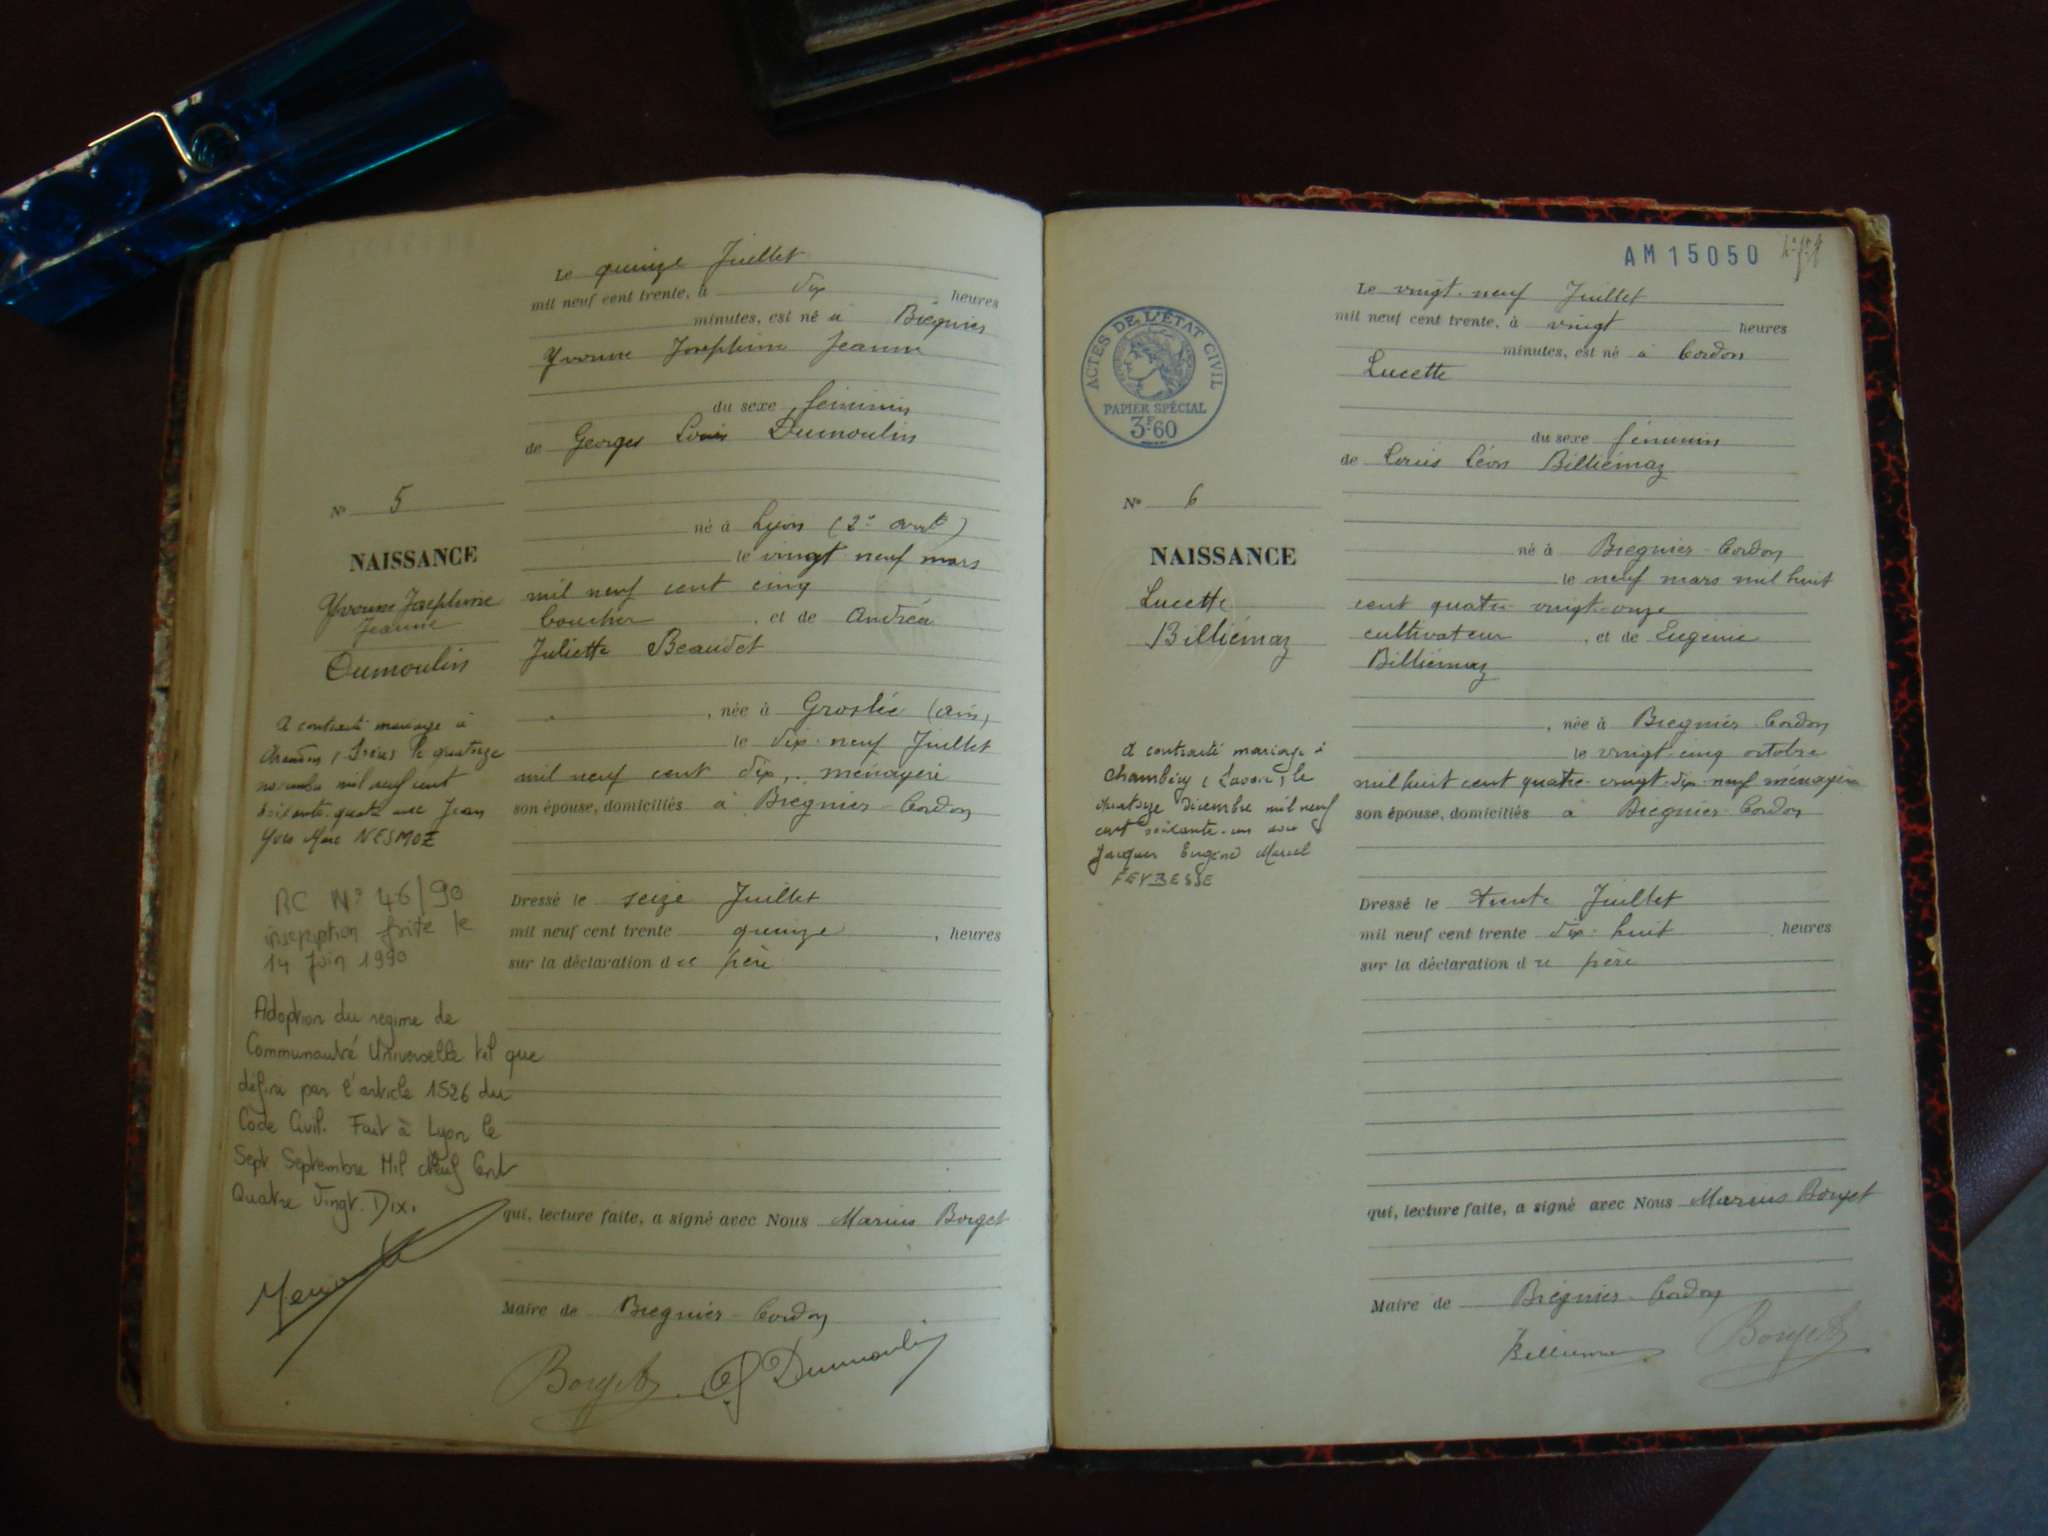 Le quinze Juillet
mil neuf cent trente, à dix heures
minutes, est né à Brégnier
Yvonne Joséphine Jeanne
du sexe féminin
de Georges Louis Dumoulin
né à Lyon (2e arrt)
le vingt neuf mars
mil neuf cent cinq
boucher, et de Andréa
Juliette Beaudet
, née à Groslée (Ain)
le dix-neuf Juillet
mil neuf cent dix, ménagère
son épouse, domiciliés à Brégnier-Cordon
Dressé le seize Juillet
mil neuf cent trente quinze, heures
sur la déclaration du père
qui, lecture faite, a signé avec Nous Marius Borget
Maire de Brégnier-Cordon
Borget Dumoulin
No 5
NAISSANCE
Yvonne Joséphine
Jeanne
Dumoulin
A contracté mariage à
(Isère) le quatorze
novembre mil neuf cent
soixante-quatre avec Jean
Yves Marc NESMOZ
RC N° 46/90
inscription faite le
14 Juin 1990
Adoption du régime de
Communauté Universelle tel que
défini par l'article 1526 du
Code Civil. Fait à Lyon le
Sept Septembre Mil Neuf Cent
Quatre Vingt. Dix.
AM 15050
ACTES DE L'ÉTAT CIVIL
PAPIER SPÉCIAL
3F60
Le vingt-neuf Juillet
mil neuf cent trente, à vingt heures
minutes, est né à Cordon
Lucette
du sexe féminin
de Louis Léon Billiémaz
né à Brégnier-Cordon
le neuf mars mil huit
cent quatre-vingt-onze
cultivateur, et de Eugénie
Billiémaz
, née à Brégnier-Cordon
le vingt-cinq octobre
mil huit cent quatre-vingt-dix-neuf ménagère
son épouse, domiciliés à Brégnier-Cordon
Dressé le trente Juillet
mil neuf cent trente dix-huit heures
sur la déclaration du père
qui, lecture faite, a signé avec Nous Marius Borget
Maire de Brégnier-Cordon
Billiémaz Borget
No 6
NAISSANCE
Lucette
Billiémaz
A contracté mariage à
Chambéry (Savoie) le
quatorze Décembre mil neuf
cent soixante-un avec
Jacques Eugène Marcel
FEYBESSE